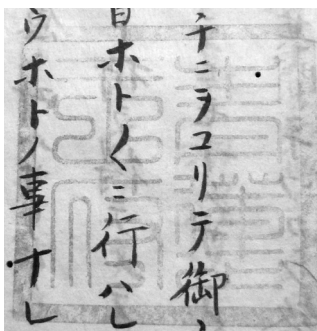 チニヲコリテ御
目ホト〱ニ行ハレ
ウホトノ事ナレ